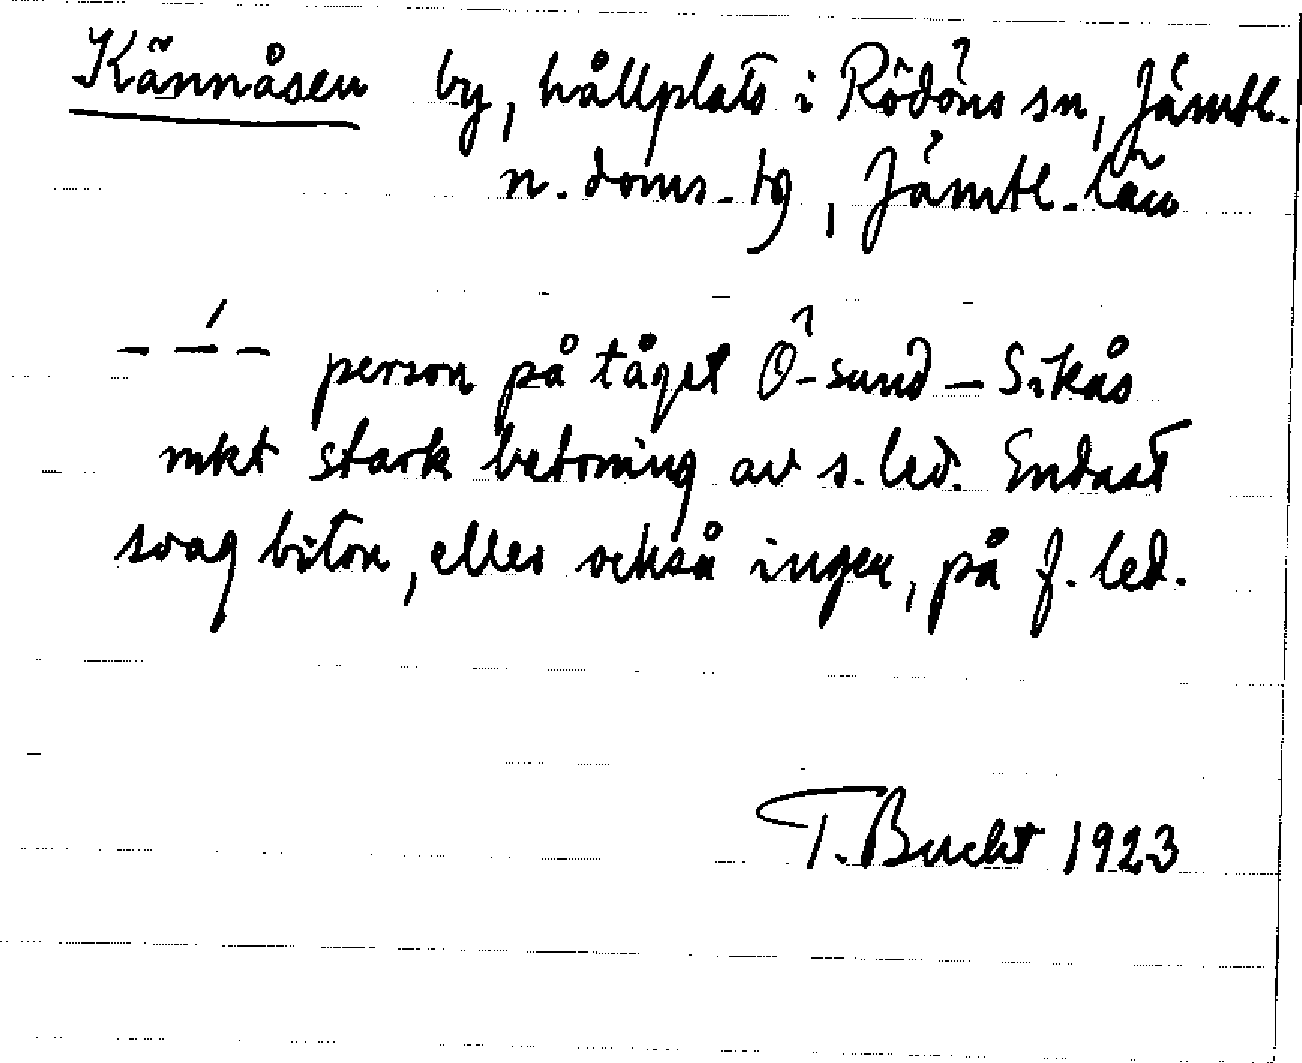 Kännåsen by, hållplats i Rödöns sn, Jämtl.
n. doms. tg, Jämtl. län
– –́ – person på tåget Ö-sund – Sikås
mkt stark betoning av s. led. Endast
svag biton, eller också ingen, på f. led.
T. Bucht 1923